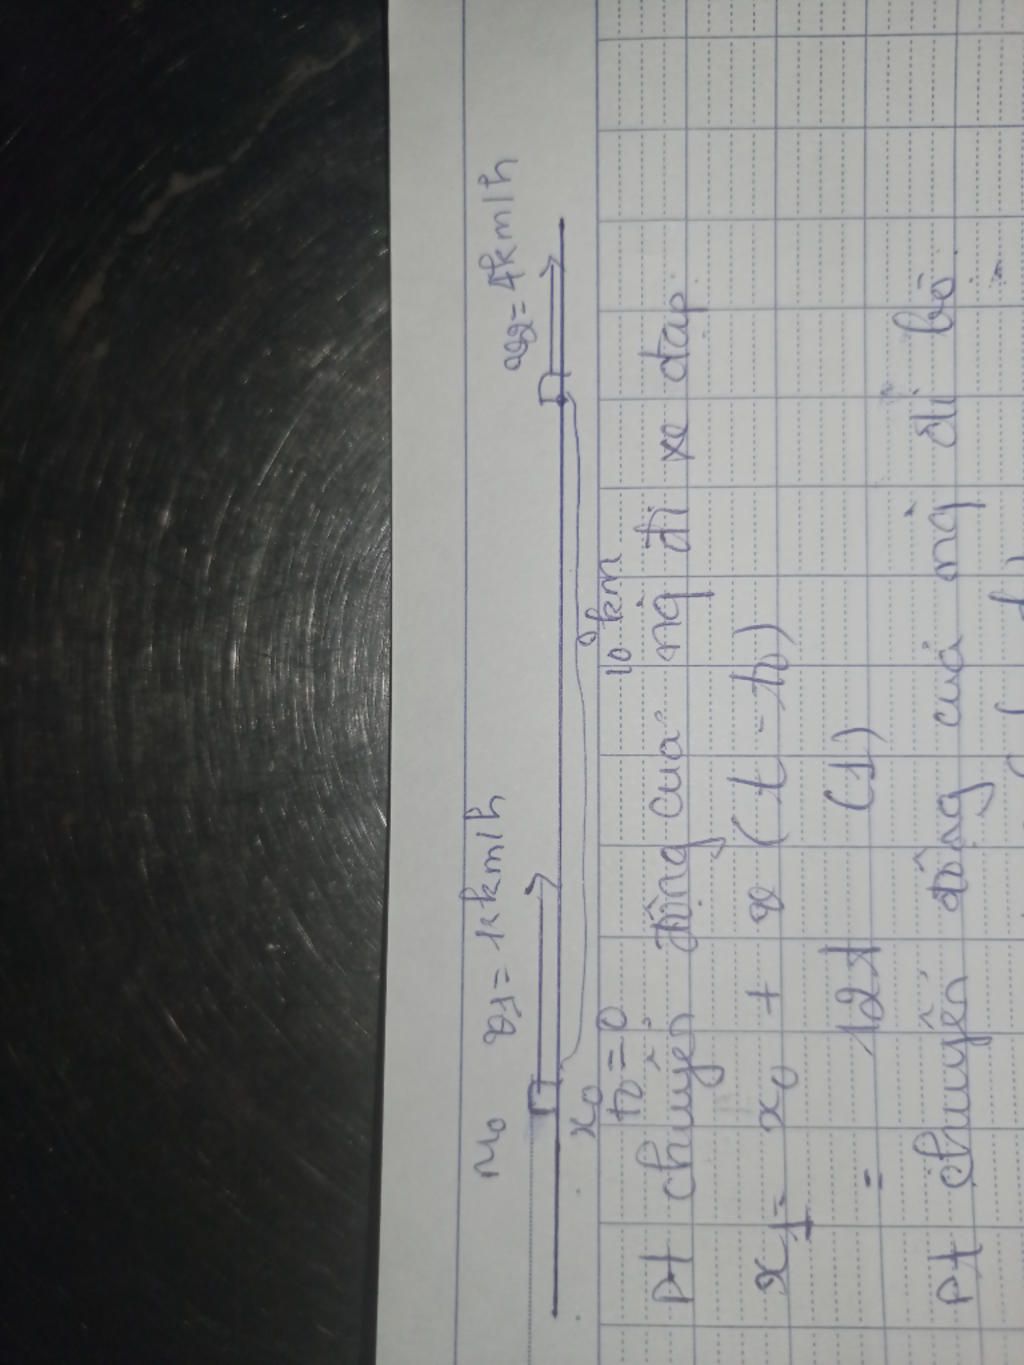 v1 = 12 km/h v2 = 4km/h
x0
t0 = 0 10 km
pt chuyển động của ng đi xe đạp
x1 = x0 + v (t - t0)
= 12t (1)
pt chuyển động của ng đi bộ